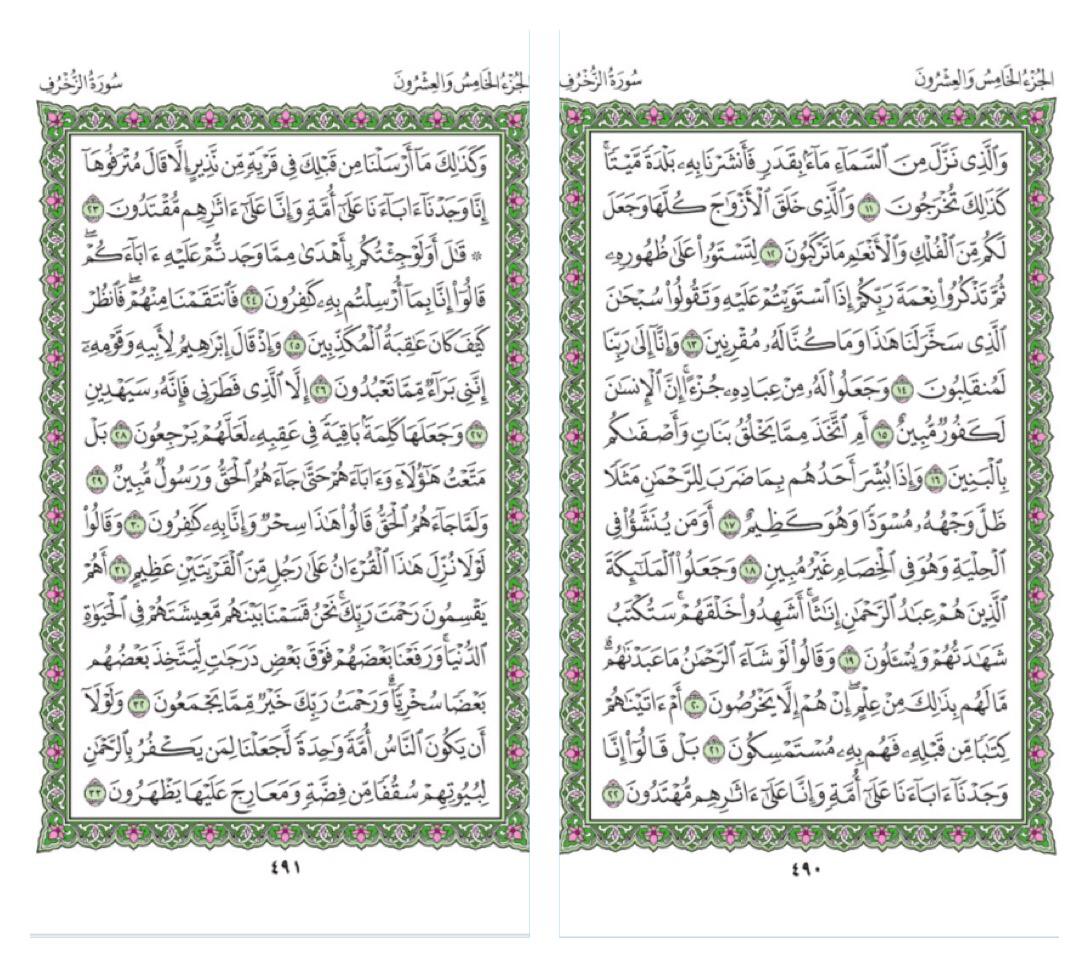 الجزء الخامس والعشرون
سورة الزخرف
وَٱلَّذِى نَزَّلَ مِنَ ٱلسَّمَآءِ مَآءًۢ بِقَدَرٍ فَأَنشَرْنَا بِهِۦ بَلْدَةً مَّيْتًاۚ
كَذَٰلِكَ تُخْرَجُونَ ١١ وَٱلَّذِى خَلَقَ ٱلْأَزْوَٰجَ كُلَّهَا وَجَعَلَ
لَكُم مِّنَ ٱلْفُلْكِ وَٱلْأَنْعَٰمِ مَا تَرْكَبُونَ ١٢ لِتَسْتَوُۥا۟ عَلَىٰ ظُهُورِهِۦ
ثُمَّ تَذْكُرُوا۟ نِعْمَةَ رَبِّكُمْ إِذَا ٱسْتَوَيْتُمْ عَلَيْهِ وَتَقُولُوا۟ سُبْحَٰنَ
ٱلَّذِى سَخَّرَ لَنَا هَٰذَا وَمَا كُنَّا لَهُۥ مُقْرِنِينَ ١٣ وَإِنَّآ إِلَىٰ رَبِّنَا
لَمُنقَلِبُونَ ١٤ وَجَعَلُوا۟ لَهُۥ مِنْ عِبَادِهِۦ جُزْءًاۚ إِنَّ ٱلْإِنسَٰنَ
لَكَفُورٌ مُّبِينٌ ١٥ أَمِ ٱتَّخَذَ مِمَّا يَخْلُقُ بَنَاتٍ وَأَصْفَىٰكُم
بِٱلْبَنِينَ ١٦ وَإِذَا بُشِّرَ أَحَدُهُم بِمَا ضَرَبَ لِلرَّحْمَٰنِ مَثَلًا
ظَلَّ وَجْهُهُۥ مُسْوَدًّا وَهُوَ كَظِيمٌ ١٧ أَوَمَن يُنَشَّؤُا۟ فِى
ٱلْحِلْيَةِ وَهُوَ فِى ٱلْخِصَامِ غَيْرُ مُبِينٍ ١٨ وَجَعَلُوا۟ ٱلْمَلَٰٓئِكَةَ
ٱلَّذِينَ هُمْ عِبَٰدُ ٱلرَّحْمَٰنِ إِنَٰثًاۚ أَشَهِدُوا۟ خَلْقَهُمْۚ سَتُكْتَبُ
شَهَٰدَتُهُمْ وَيُسْـَٔلُونَ ١٩ وَقَالُوا۟ لَوْ شَآءَ ٱلرَّحْمَٰنُ مَا عَبَدْنَٰهُمۗ
مَّا لَهُم بِذَٰلِكَ مِنْ عِلْمٍۖ إِنْ هُمْ إِلَّا يَخْرُصُونَ ٢٠ أَمْ ءَاتَيْنَٰهُمْ
كِتَٰبًا مِّن قَبْلِهِۦ فَهُم بِهِۦ مُسْتَمْسِكُونَ ٢١ بَلْ قَالُوٓا۟ إِنَّا
وَجَدْنَآ ءَابَآءَنَا عَلَىٰٓ أُمَّةٍ وَإِنَّا عَلَىٰٓ ءَاثَٰرِهِم مُّهْتَدُونَ ٢٢
٤٩٠
الجزء الخامس والعشرون
سورة الزخرف
وَكَذَٰلِكَ مَآ أَرْسَلْنَا مِن قَبْلِكَ فِى قَرْيَةٍ مِّن نَّذِيرٍ إِلَّا قَالَ مُتْرَفُوهَآ
إِنَّا وَجَدْنَآ ءَابَآءَنَا عَلَىٰٓ أُمَّةٍ وَإِنَّا عَلَىٰٓ ءَاثَٰرِهِم مُّقْتَدُونَ ٢٣
۞ قَٰلَ أَوَلَوْ جِئْتُكُم بِأَهْدَىٰ مِمَّا وَجَدتُّمْ عَلَيْهِ ءَابَآءَكُمْۖ
قَالُوٓا۟ إِنَّا بِمَآ أُرْسِلْتُم بِهِۦ كَٰفِرُونَ ٢٤ فَٱنتَقَمْنَا مِنْهُمْۖ فَٱنظُرْ
كَيْفَ كَانَ عَٰقِبَةُ ٱلْمُكَذِّبِينَ ٢٥ وَإِذْ قَالَ إِبْرَٰهِيمُ لِأَبِيهِ وَقَوْمِهِۦٓ
إِنَّنِى بَرَآءٌ مِّمَّا تَعْبُدُونَ ٢٦ إِلَّا ٱلَّذِى فَطَرَنِى فَإِنَّهُۥ سَيَهْدِينِ
٢٧ وَجَعَلَهَا كَلِمَةًۢ بَاقِيَةً فِى عَقِبِهِۦ لَعَلَّهُمْ يَرْجِعُونَ ٢٨ بَلْ
مَتَّعْتُ هَٰٓؤُلَآءِ وَءَابَآءَهُمْ حَتَّىٰ جَآءَهُمُ ٱلْحَقُّ وَرَسُولٌ مُّبِينٌ ٢٩
وَلَمَّا جَآءَهُمُ ٱلْحَقُّ قَالُوا۟ هَٰذَا سِحْرٌ وَإِنَّا بِهِۦ كَٰفِرُونَ ٣٠ وَقَالُوا۟
لَوْلَا نُزِّلَ هَٰذَا ٱلْقُرْءَانُ عَلَىٰ رَجُلٍ مِّنَ ٱلْقَرْيَتَيْنِ عَظِيمٍ ٣١ أَهُمْ
يَقْسِمُونَ رَحْمَتَ رَبِّكَۚ نَحْنُ قَسَمْنَا بَيْنَهُم مَّعِيشَتَهُمْ فِى ٱلْحَيَوٰةِ
ٱلدُّنْيَاۚ وَرَفَعْنَا بَعْضَهُمْ فَوْقَ بَعْضٍ دَرَجَٰتٍ لِّيَتَّخِذَ بَعْضُهُم
بَعْضًا سُخْرِيًّاۗ وَرَحْمَتُ رَبِّكَ خَيْرٌ مِّمَّا يَجْمَعُونَ ٣٢ وَلَوْلَآ
أَن يَكُونَ ٱلنَّاسُ أُمَّةً وَٰحِدَةً لَّجَعَلْنَا لِمَن يَكْفُرُ بِٱلرَّحْمَٰنِ
لِبُيُوتِهِمْ سُقُفًا مِّن فِضَّةٍ وَمَعَارِجَ عَلَيْهَا يَظْهَرُونَ ٣٣
٤٩١